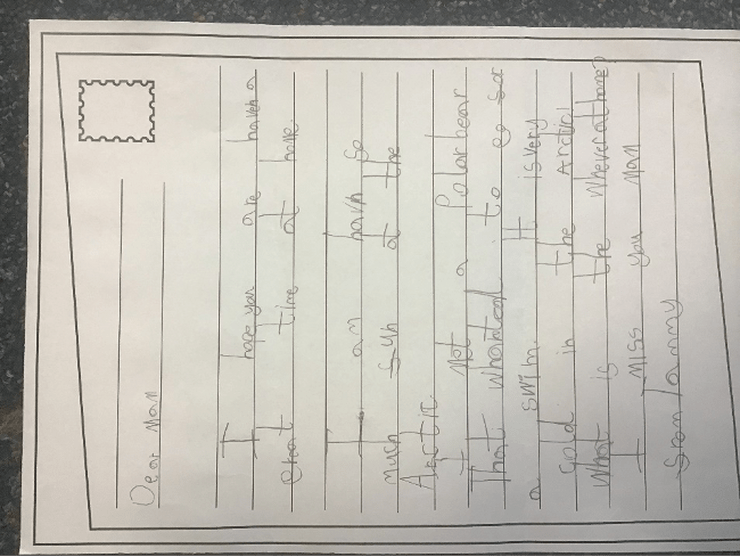 Dear Mam
I hope you are haveh a
great time at home.
I am havh so
much fun at the
Arctic.
I Met a Polar bear
That whanted to go for
a swim. It is very
cold in the Arctic!
What is the Whever at home?
I Miss you Mam
from Tammy